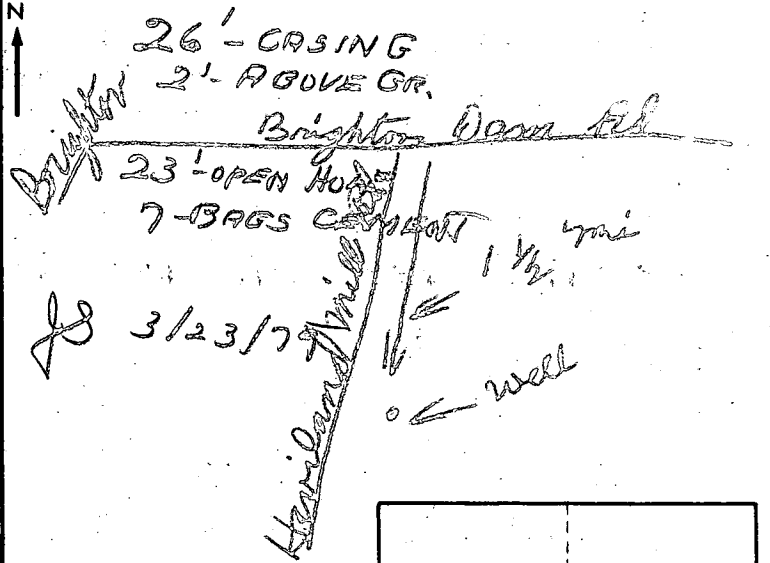 N
26'-CASING
2'-ABOVE GR.
Brighton
Brighton Dam Rd
23'-OPEN HOLE
7-BAGS CEMENT
1 1/2 mi
JS 3/23/79
Well
Haviland Mill Rd